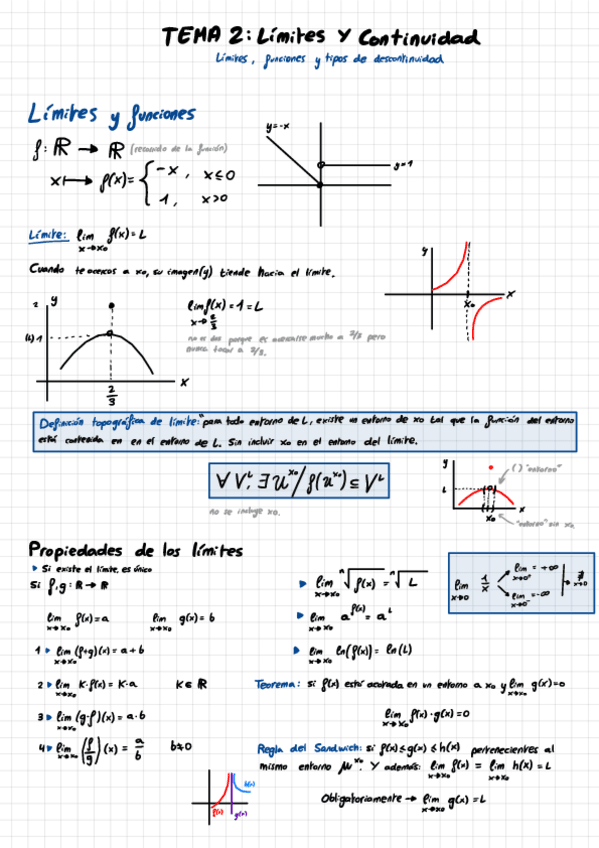 TEMA 2: Límites Y Continuidad
Límites, funciones y tipos de descontinuidad
Límites y funciones
f: ℝ → ℝ (recorrido de la función)
x ↦ f(x) = { -x, x≤0
1, x>0
y=-x
y=1
Límite: lim x→x₀ f(x) = L
Cuando te acercas a x₀, su imagen(y) tiende hacia el límite.
y
x₀
x
2
y
(L) 1
2/3
x
lim f(x) = 1 = L
x→2/3
no es dos porque es acercarse mucho a 2/3 pero
nunca tocar a 2/3.
Definición topográfica de límite: "para todo entorno de L, existe un entorno de x₀ tal que la función del entorno
está contenida en en el entorno de L. Sin incluir x₀ en el entorno del límite.
∀ Vᴸ, ∃ Uˣ⁰ / f(uˣ⁰) ⊆ Vᴸ
no se incluye x₀.
y
L
x₀
x
( ) "entorno"
"entorno" sin x₀
Propiedades de los límites
Si existe el límite, es único
Si f,g: ℝ → ℝ
lim x→x₀ f(x) = a lim x→x₀ g(x) = b
1 lim x→x₀ (f+g)(x) = a+b
2 lim x→x₀ K·f(x) = K·a K∈ℝ
3 lim x→x₀ (g·f)(x) = a·b
4 lim x→x₀ (f/g)(x) = a/b b≠0
f(x)
g(x)
h(x)
lim x→x₀ ⁿ√f(x) = ⁿ√L
lim x→x₀ a^f(x) = a^L
lim x→x₀ ln(f(x)) = ln(L)
lim x→0 1/x
lim x→0⁺ = +∞
lim x→0⁻ = -∞
∄ x→0
Teorema: si f(x) está acotada en un entorno a x₀ y lim x→x₀ g(x)=0
lim x→x₀ f(x)·g(x)=0
Regla del Sandwich: si f(x)≤g(x)≤h(x) pertenecientes al
mismo entorno μˣ⁰. Y además: lim x→x₀ f(x) = lim x→x₀ h(x) = L
Obligatoriamente → lim x→x₀ g(x) = L